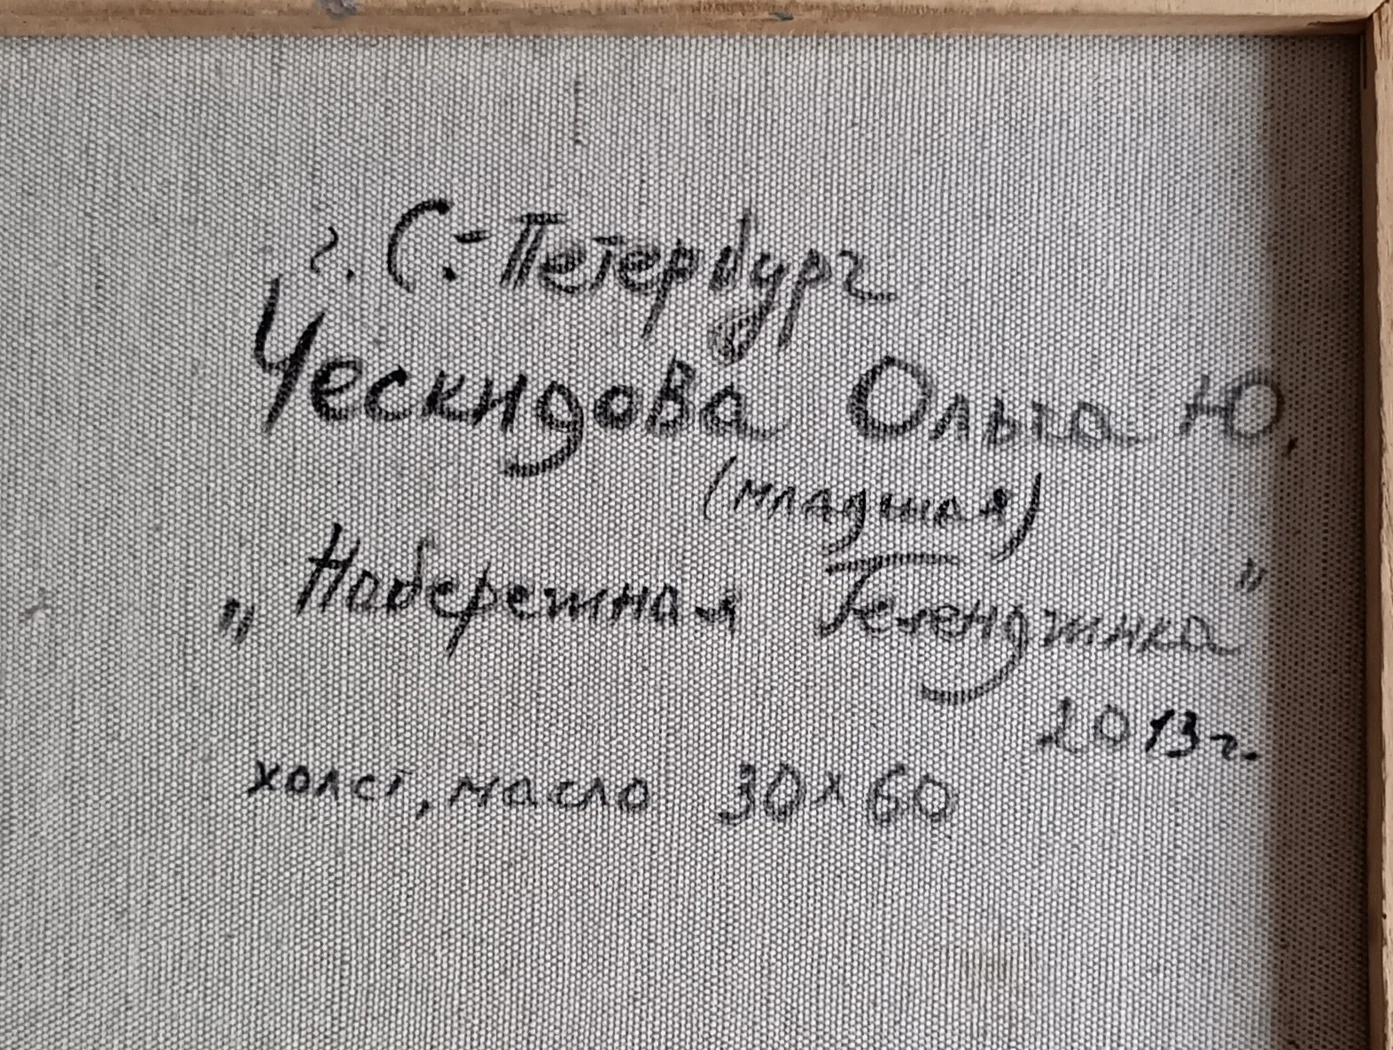 г. С.-Петербург
Ческидова Ольга Ю.
(младшая)
„Набережная Геленджика"
2013г.
холст, масло 30×60